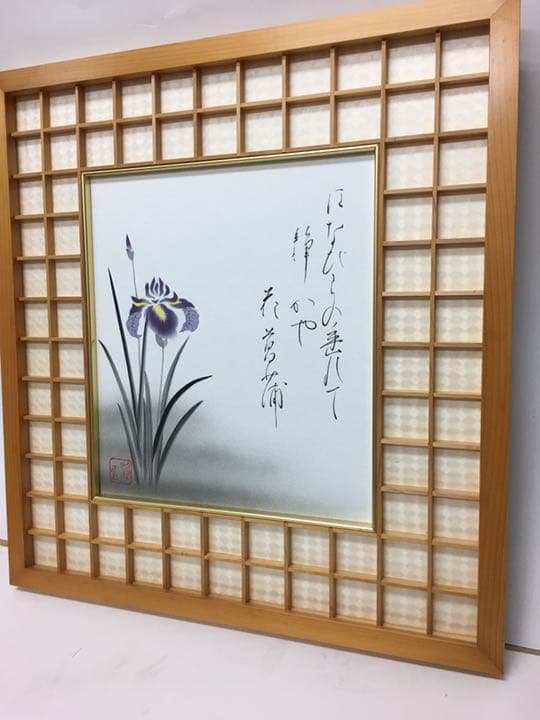 はなびらの垂れて
静かや
花菖蒲